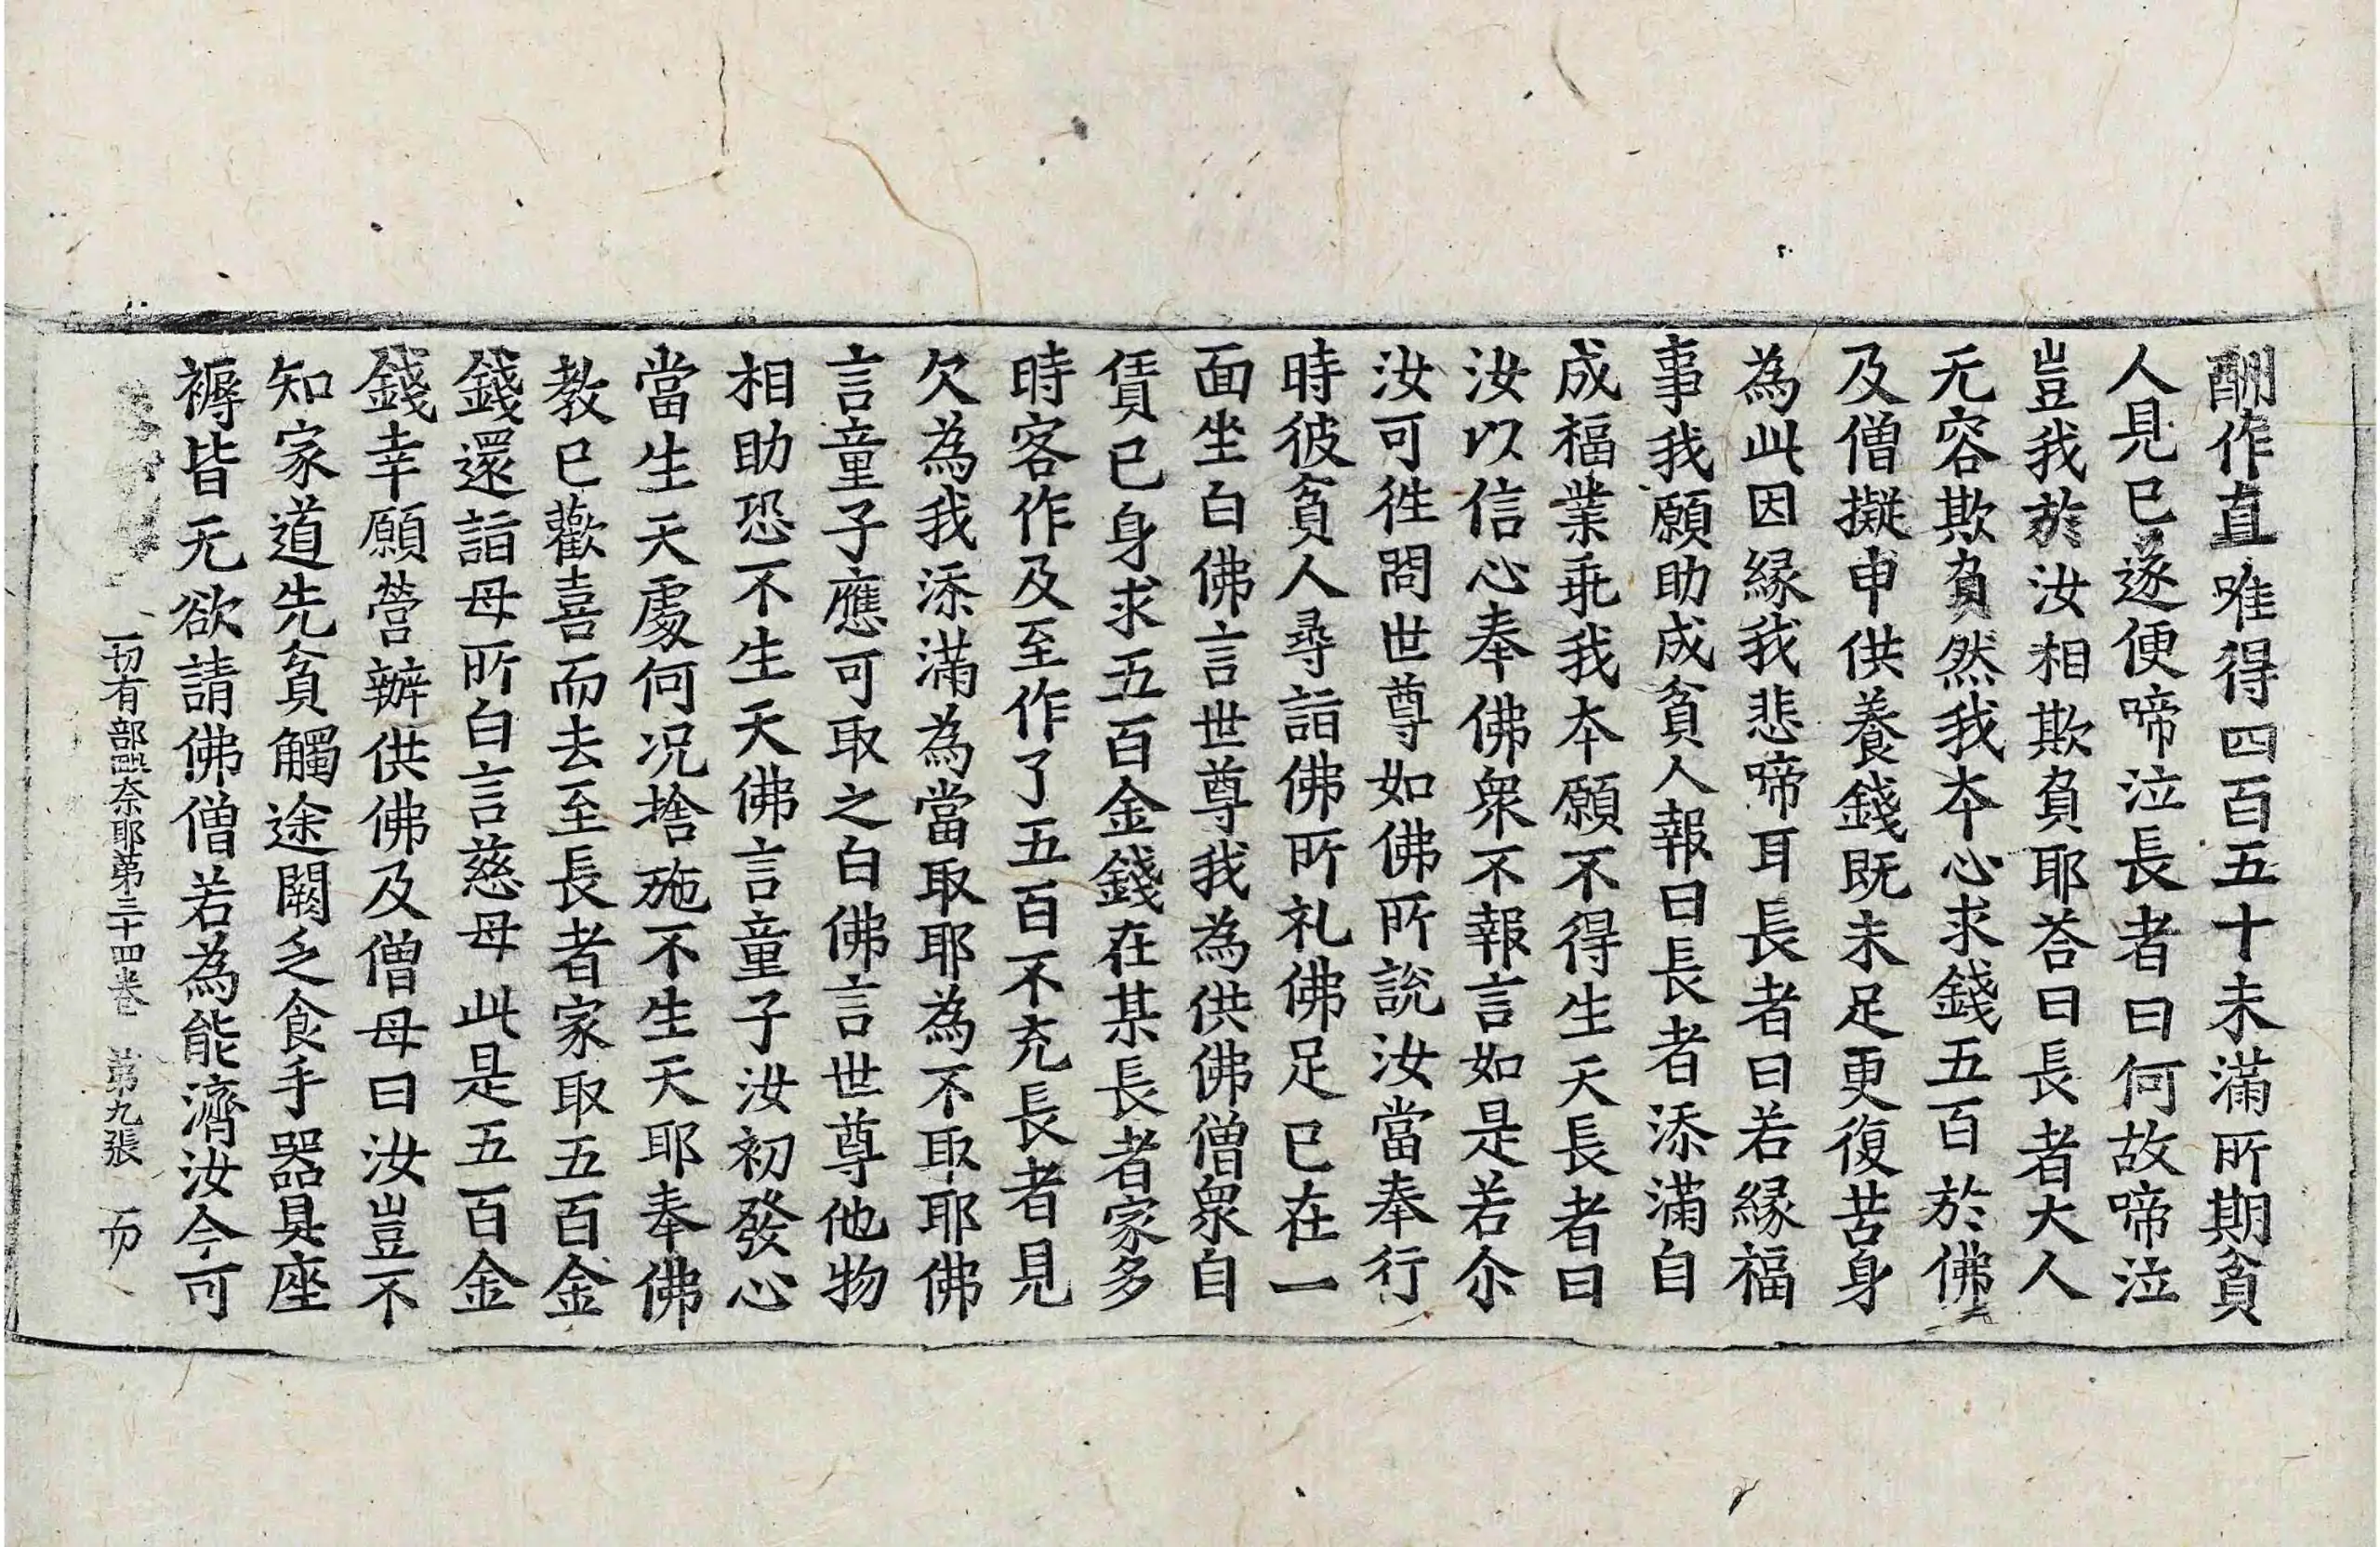 酬作直唯得四百五十未滿所期貧
人見已遂便啼泣長者曰何故啼泣
豈我於汝相欺負耶荅曰長者大人
无容欺負然我本心求錢五百於佛
及僧擬申供養錢既未足更復苦身
為此因緣我悲啼耳長者曰若緣福
事我願助成貧人報曰長者添滿自
成福業乖我本願不得生天長者曰
汝以信心奉佛衆不報言如是若尒
汝可徃問世尊如佛所說汝當奉行
時彼貧人尋詣佛所礼佛足已在一
面坐白佛言世尊我為供佛僧衆自
賃已身求五百金錢在某長者家多
時客作及至作了五百不充長者見
欠為我添滿為當取耶為不取耶佛
言童子應可取之白佛言世尊他物
相助恐不生天佛言童子汝初發心
當生天處何况捨施不生天耶奉佛
教已歡喜而去至長者家取五百金
錢還詣母所白言慈母此是五百金
錢幸願營辦供佛及僧母曰汝豈不
知家道先貧觸途闕乏食手器具座
褥皆无欲請佛僧若為能濟汝今可
一切有部毗奈耶第三十四卷 第九張